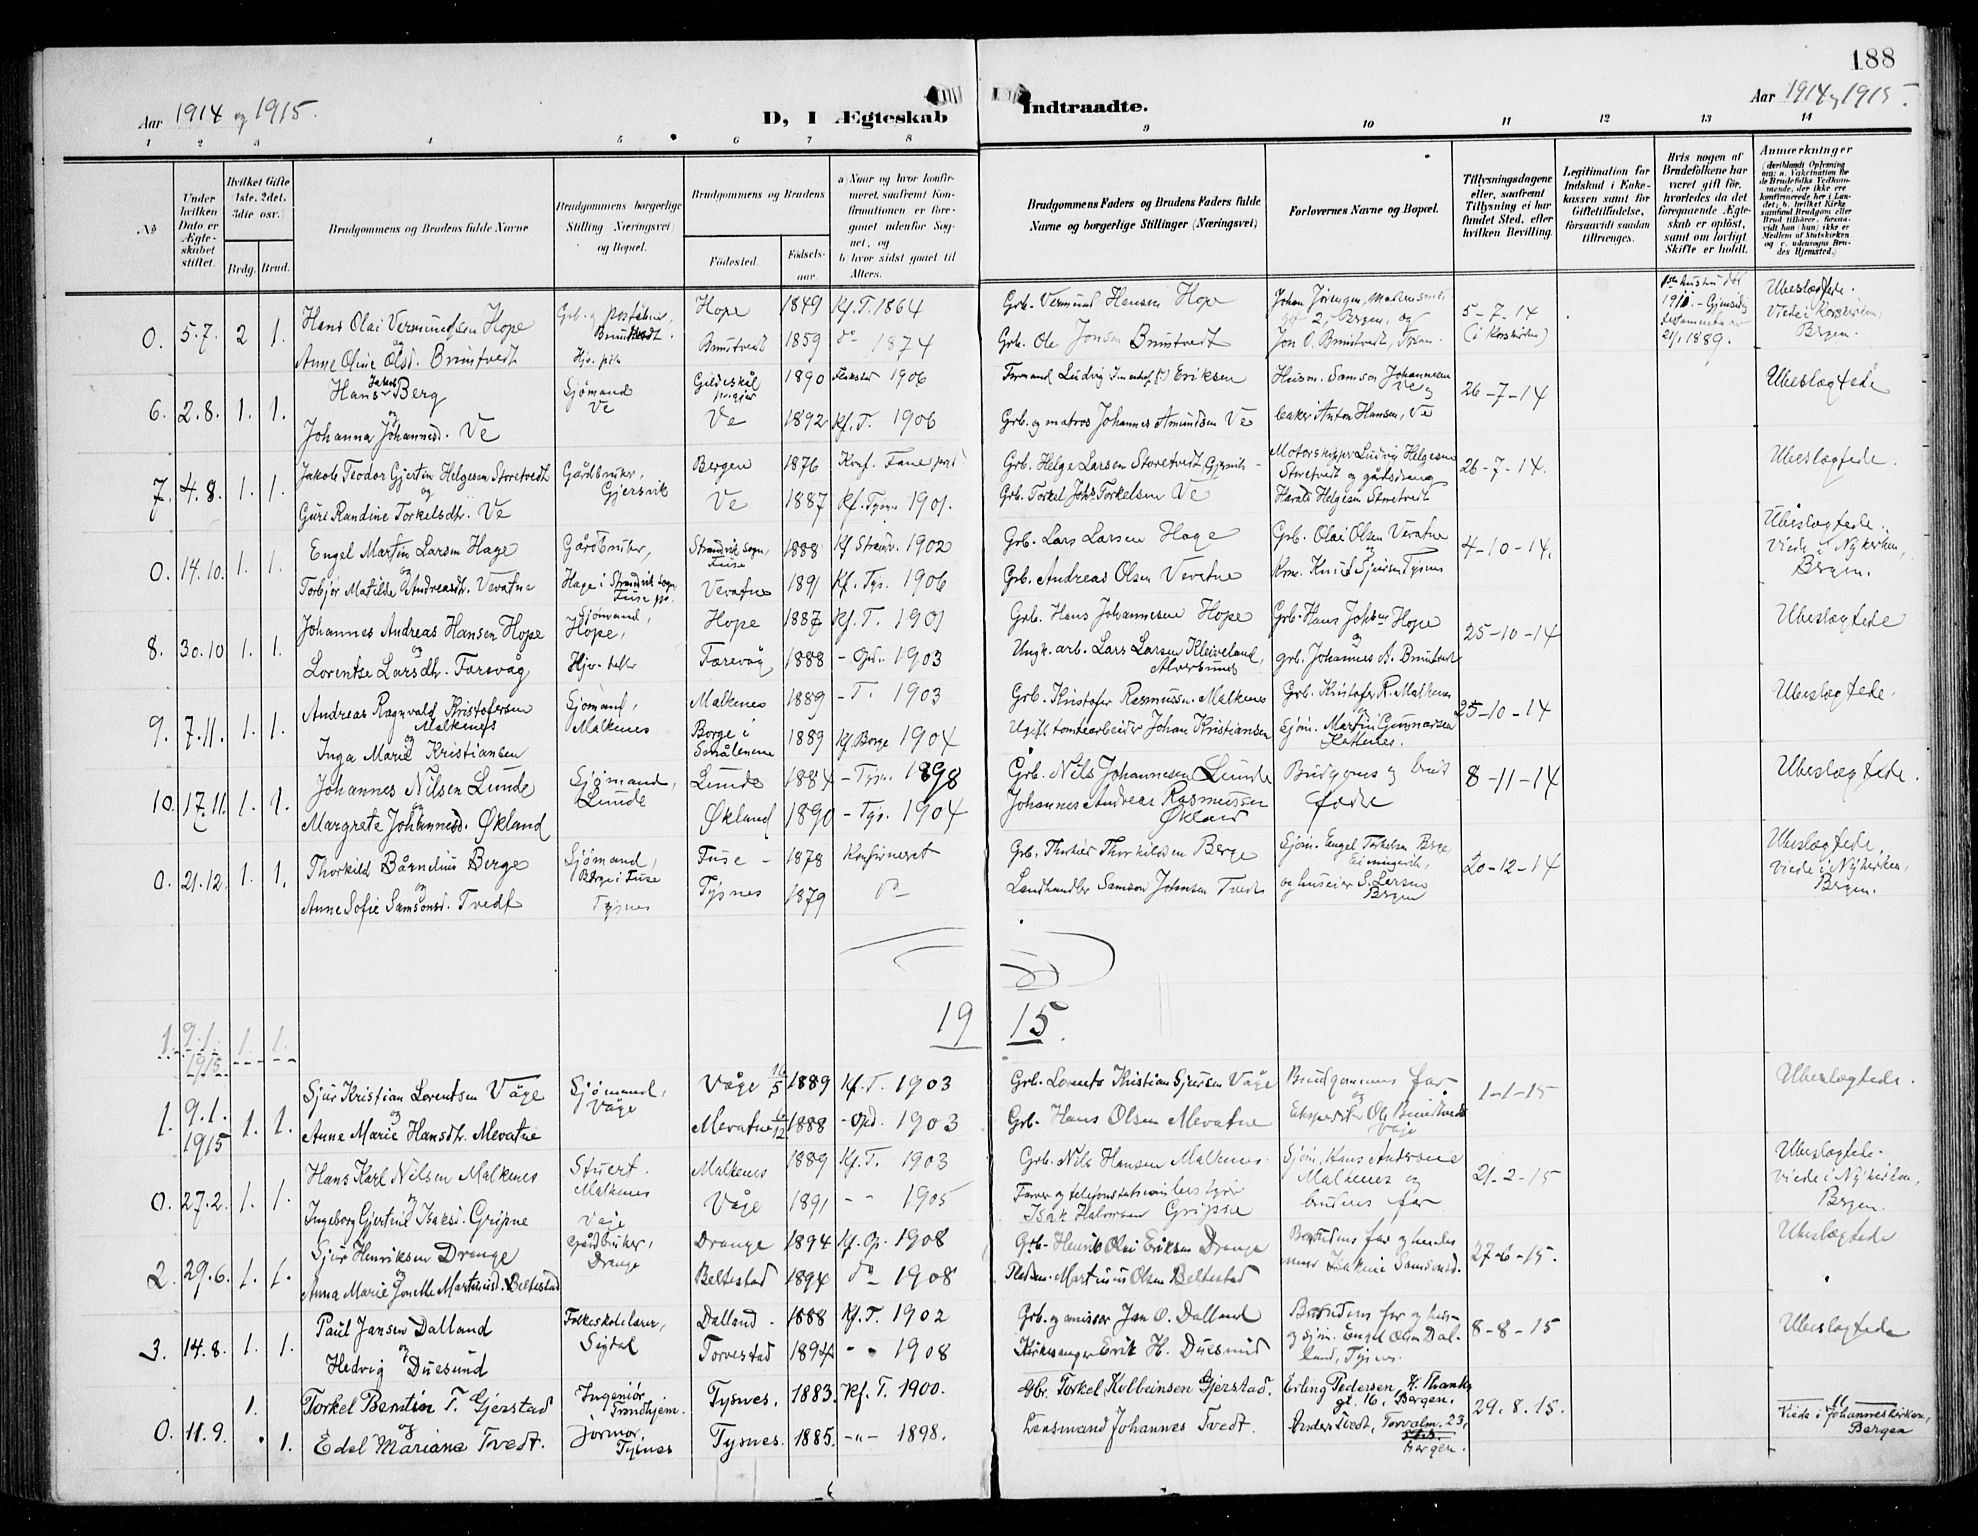 188
Aar 1914 og 1915.
D, I Ægteskab Indtraadte.
Aar 1914 og 1915.
1 2 3 4 5 6 7 8 9 10 11 12 13 14
No
Under hvilken Dato er Ægteskabet stiftet.
Hvilket Gifte (1ste, 2det, 3die osv.)
Brdg. Brud.
Brudgommens og Brudens fulde Navne
Brudgommens borgerlige Stilling (Næringsvei) og Bopæl.
Brudgommens og Brudens
Fødested.
Fødselsaar.
a) Naar og hvor konfirmeret, saafremt Konfirmationen er foregaaet udenfor Sognet, og
b) hvor sidst gaaet til Alters.
Brudgommens Faders og Brudens Faders fulde Navne og borgerlige Stillinger (Næringsvei)
Forlovernes Navne og Bopæl.
Tillysningsdagene eller, saafremt Tillysning ei har fundet Sted, efter hvilken Bevilling.
Legitimation for Indskud i Enkekassen samt for Giftetilladelse, forsaavidt saadan tiltrænges.
Hvis nogen af Brudefolkene har været gift før, hvorledes da det foregaaende Ægteskab er opløst, samt om lovligt Skifte er holdt.
Anmærkninger
0. 5.7. 2 1. Hans Olai Vermundsen Hope Hope 1849 Kf. T. 1864 Grb. Vermund Hansen Hope 5-7-14 Ubeslægtede.
og
Anne Oline Olsd. Bruntvedt Bruntvedt 1859 do 1874 Grb. Ole Jonsen Bruntvedt Jon O. Bruntvedt, Tysn. (i Korskirken) 21/1 1889. Viede i Korskirken, Bergen.
6. 2.8. 1. 1. Hans Jakob Berg Sjömand Ve Gildeskål 1890 1906 Husm. Samson Johannesen Ve og 26-7-14 Ubeslægtede
og
Johanna Johannesd. Ve Ve 1892 Kf. T. 1906 Grb. og matros Johannes Amundsen Ve Anton Hansen, Ve
7. 4.8. 1. 1. Jakob Teodor Gjertin Helgesen Storetvedt Gårdbruker, Gjersvik Bergen 1876 Konf. Fane Grb. Helge Larsen Storetvedt Motorskipper Ludvig Helgesen Storetvedt og 26-7-14. Ubeslægtede.
og
Guri Randine Torkelsdtr. Ve Ve 1887 Kf. Tysn. 1901. Grb. Torkel Johs Torkelsen Ve Harald Helgesen Storetvedt
0. 14.10. 1. 1. Engel Martin Larsen Hage Gårdbruker, Strandvik sogn, Fuse 1888 Kf Strandv. 1902 Grb. Lars Larsen Hage Grb. Olai Olsen Vevatne 4-10-14. Ubeslægtede.
og
Torbjör Matilde Andreasdtr. Vevatne Hage i Strandvik sogn, Fuse Vevatne 1891 Kf. Tys. 1906 Grb. Andreas Olsen Vevatne Viede i Nykirken, Bergen.
8. 30.10 1. 1. Johannes Andreas Hansen Hope Sjömand, Hope, Hope 1887 Kf. T. 1901 Grb. Hans Johannesen Hope Grb. Hans Johsen Hope 25-10-14 Ubeslægtede
og
Lorentse Larsdtr. Farevåg Farevåg 1888 1903 Ungk. arb. Lars Larsen Kleiveland, Alversund grb. Johannes A. Bruntvedt
9. 7.11. 1. 1. Andreas Ragnvald Kristofersen Malkenes Sjömand, Malkenes Malkenes 1889 - T. 1903 Grb. Kristofer Rasmussen Malkenes Grb. Kristofer R. Malkenes 25-10-14 Ubeslægtede.
og
Inga Marie Kristiansen Borge i Smålenene 1889 Kf. Borge 1904 Ugift tomtearbeider Johan Kristiansen Sjöm. Martin Gunnarsen
10. 17.11. 1. 1. Johannes Nilsen Lunde Sjömand, Lunde Lunde 1884 - Tysn. 1898 Grb. Nils Johannesen Lunde Brudgoms og brud 8-11-14 Ubeslægtede.
og
Margrete Johannesd. Økland Økland 1890 - Tys. 1904 Johannes Andreas Rasmussen Økland fædre
0. 21.12. 1. 1. Thorkild Bårnelius Berge Sjömand, Berge i Fuse Fuse - 1878 Konfirmeret Grb. Thorkild Thorkildsen Berge Sjöm. Engel Torkelsen Berge 20-12-14 Ubeslægtede,
og
Anne Sofie Samsonsd. Tvedt Tysnes Tysnes 1879 do Landhandler Samson Johnsen Tvedt S. Larsen Bergen Viede i Nykirken, Bergen.
1915.
1. 9.1. 1915. 1. 1.
1. 9.1. 1915 1. 1. Sjur Kristian Lorentsen Våge Sjömand, Våge Våge 16/5 1889 Kf. T. 1903 Grb. Lorents Kristian Sjursen Våge Brudgommens far og 1-1-15 Ubeslægtede.
og
Anne Marie Hansdtr. Mevatne Mevatne 1888 - Opd. 1903 Grb. Hans Olsen Mevatne Ekspeditör Ole Bruntvedt Våge
0. 27.2. 1. 1. Hans Karl Nilsen Malkenes Stuert. Malkenes Malkenes 1889 Kf. T. 1903 Grb. Nils Hansen Malkenes. Sjöm. Hans Andersen Malkenes og brudens far 21-2-15 Ubeslægtede.
og
Ingeborg Gjertine Isaksd. Gripne Våge Våge 1891 - - 1905 Farver og telefonstationsbestyrer Isak Halvorsen Gripne Viede i Nykirken, Bergen.
2. 29.6. 1. 1. Sjur Henriksen Drange Gårdbruker, Drange Drange 1894 Kf. Op. 1908 Grb. Henrik Olai Eriksen Drange Brudens far og hendes 27-6-15. Ubeslægtede
og
Anna Marie Jonette Martinusd. Beltestad Beltestad 1894 do 1908 Pladsm. Martinius Olsen Beltestad Samsonsd.
3. 14.8. 1. 1. Paul Jansen Dalland Folkeskolelærer, Sigdal Dalland - 1888 Kf. T. 1902 Grb. og amissær Jan O. Dalland Brudens far og 8-8-15 Ubeslægtede
og
Hedvig Duesund Torvestad 1894 - " 1908 Kirkesanger Erik H. Duesund sjöm. Engel Olsen Dalland, Tysnes.
0. 11.9. 1. 1. Torkel Berntin T. Gjerstad Ingeniör Trondhjem. Tysnes. 1883. Kf. T. 1900. Gbr. Torkel Kolbeinsen Gjerstad. Erling Pedersen, gt. 16, Bergen. 29.8.15. "
og
Edel Mariane Tvedt. Jormor, Tysnes Tysnes 1885. -"- 1898. Lensmand Johannes Tvedt. Anders Tvedt, Torvalm. 23, Bergen. Viede i Johanneskirken, Bergen